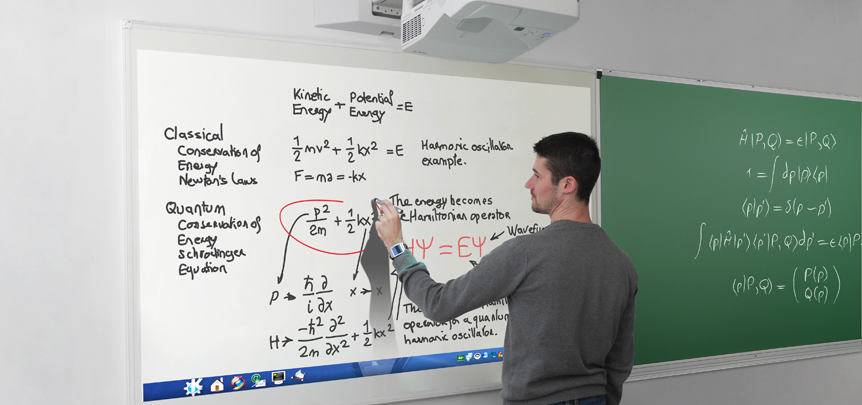 Kinetic Potential
Energy + Energy = E
Classical
Conservation of
Energy
Newton's laws
1/2 mv² + 1/2 kx² = E
F = ma = -kx
Harmonic oscillator
example.
Quantum
Conservation of
Energy
Schrodinger
Equation
p²/2m + 1/2 kx
The energy becomes
Hamiltonian operator
HΨ = EΨ
p → ħ/i ∂/∂x
x → x
H → -ħ²/2m ∂²/∂x² + 1/2 kx²
operator for a quantum
harmonic oscillator.
Ĥ|P,Q⟩ = ε|P,Q⟩
1 = ∫ dp|p⟩⟨p|
⟨p|p'⟩ = δ(p - p')
∫⟨p|Ĥ|p'⟩⟨p'|P,Q⟩dp' = ε⟨p|P
⟨p|P,Q⟩ = (P(p) Q(p))